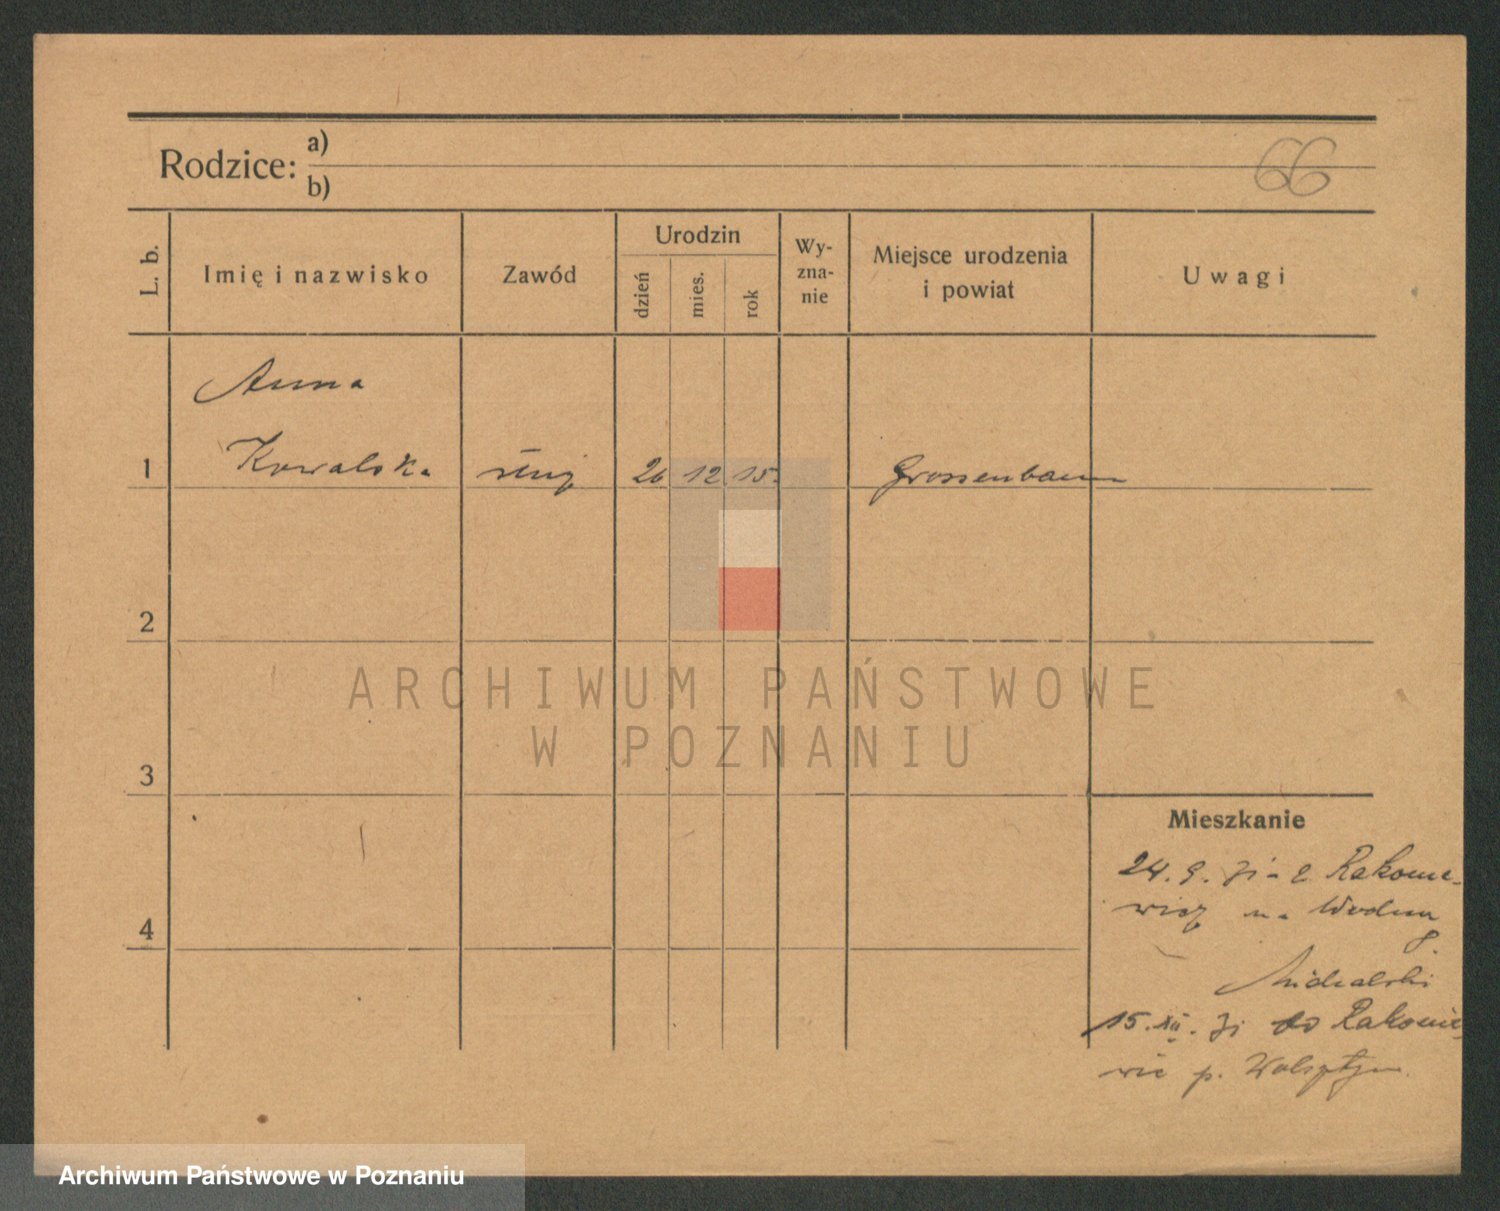 Rodzice: a)
b)
66
L. b.
Imię i nazwisko
Zawód
Urodzin
dzień
mies.
rok
Wy-
zna-
nie
Miejsce urodzenia
i powiat
Uwagi
Anna
1 Kowalska służ 26 12 15. Grossenbaum
2
3
4
Mieszkanie
24. 9. 31 - z Rakonie-
wicz na Wodną
8.
Michalski
15. XII. 31 do Rakonie-
wic p. Wolsztyn.
ARCHIWUM PAŃSTWOWE
W POZNANIU
Archiwum Państwowe w Poznaniu